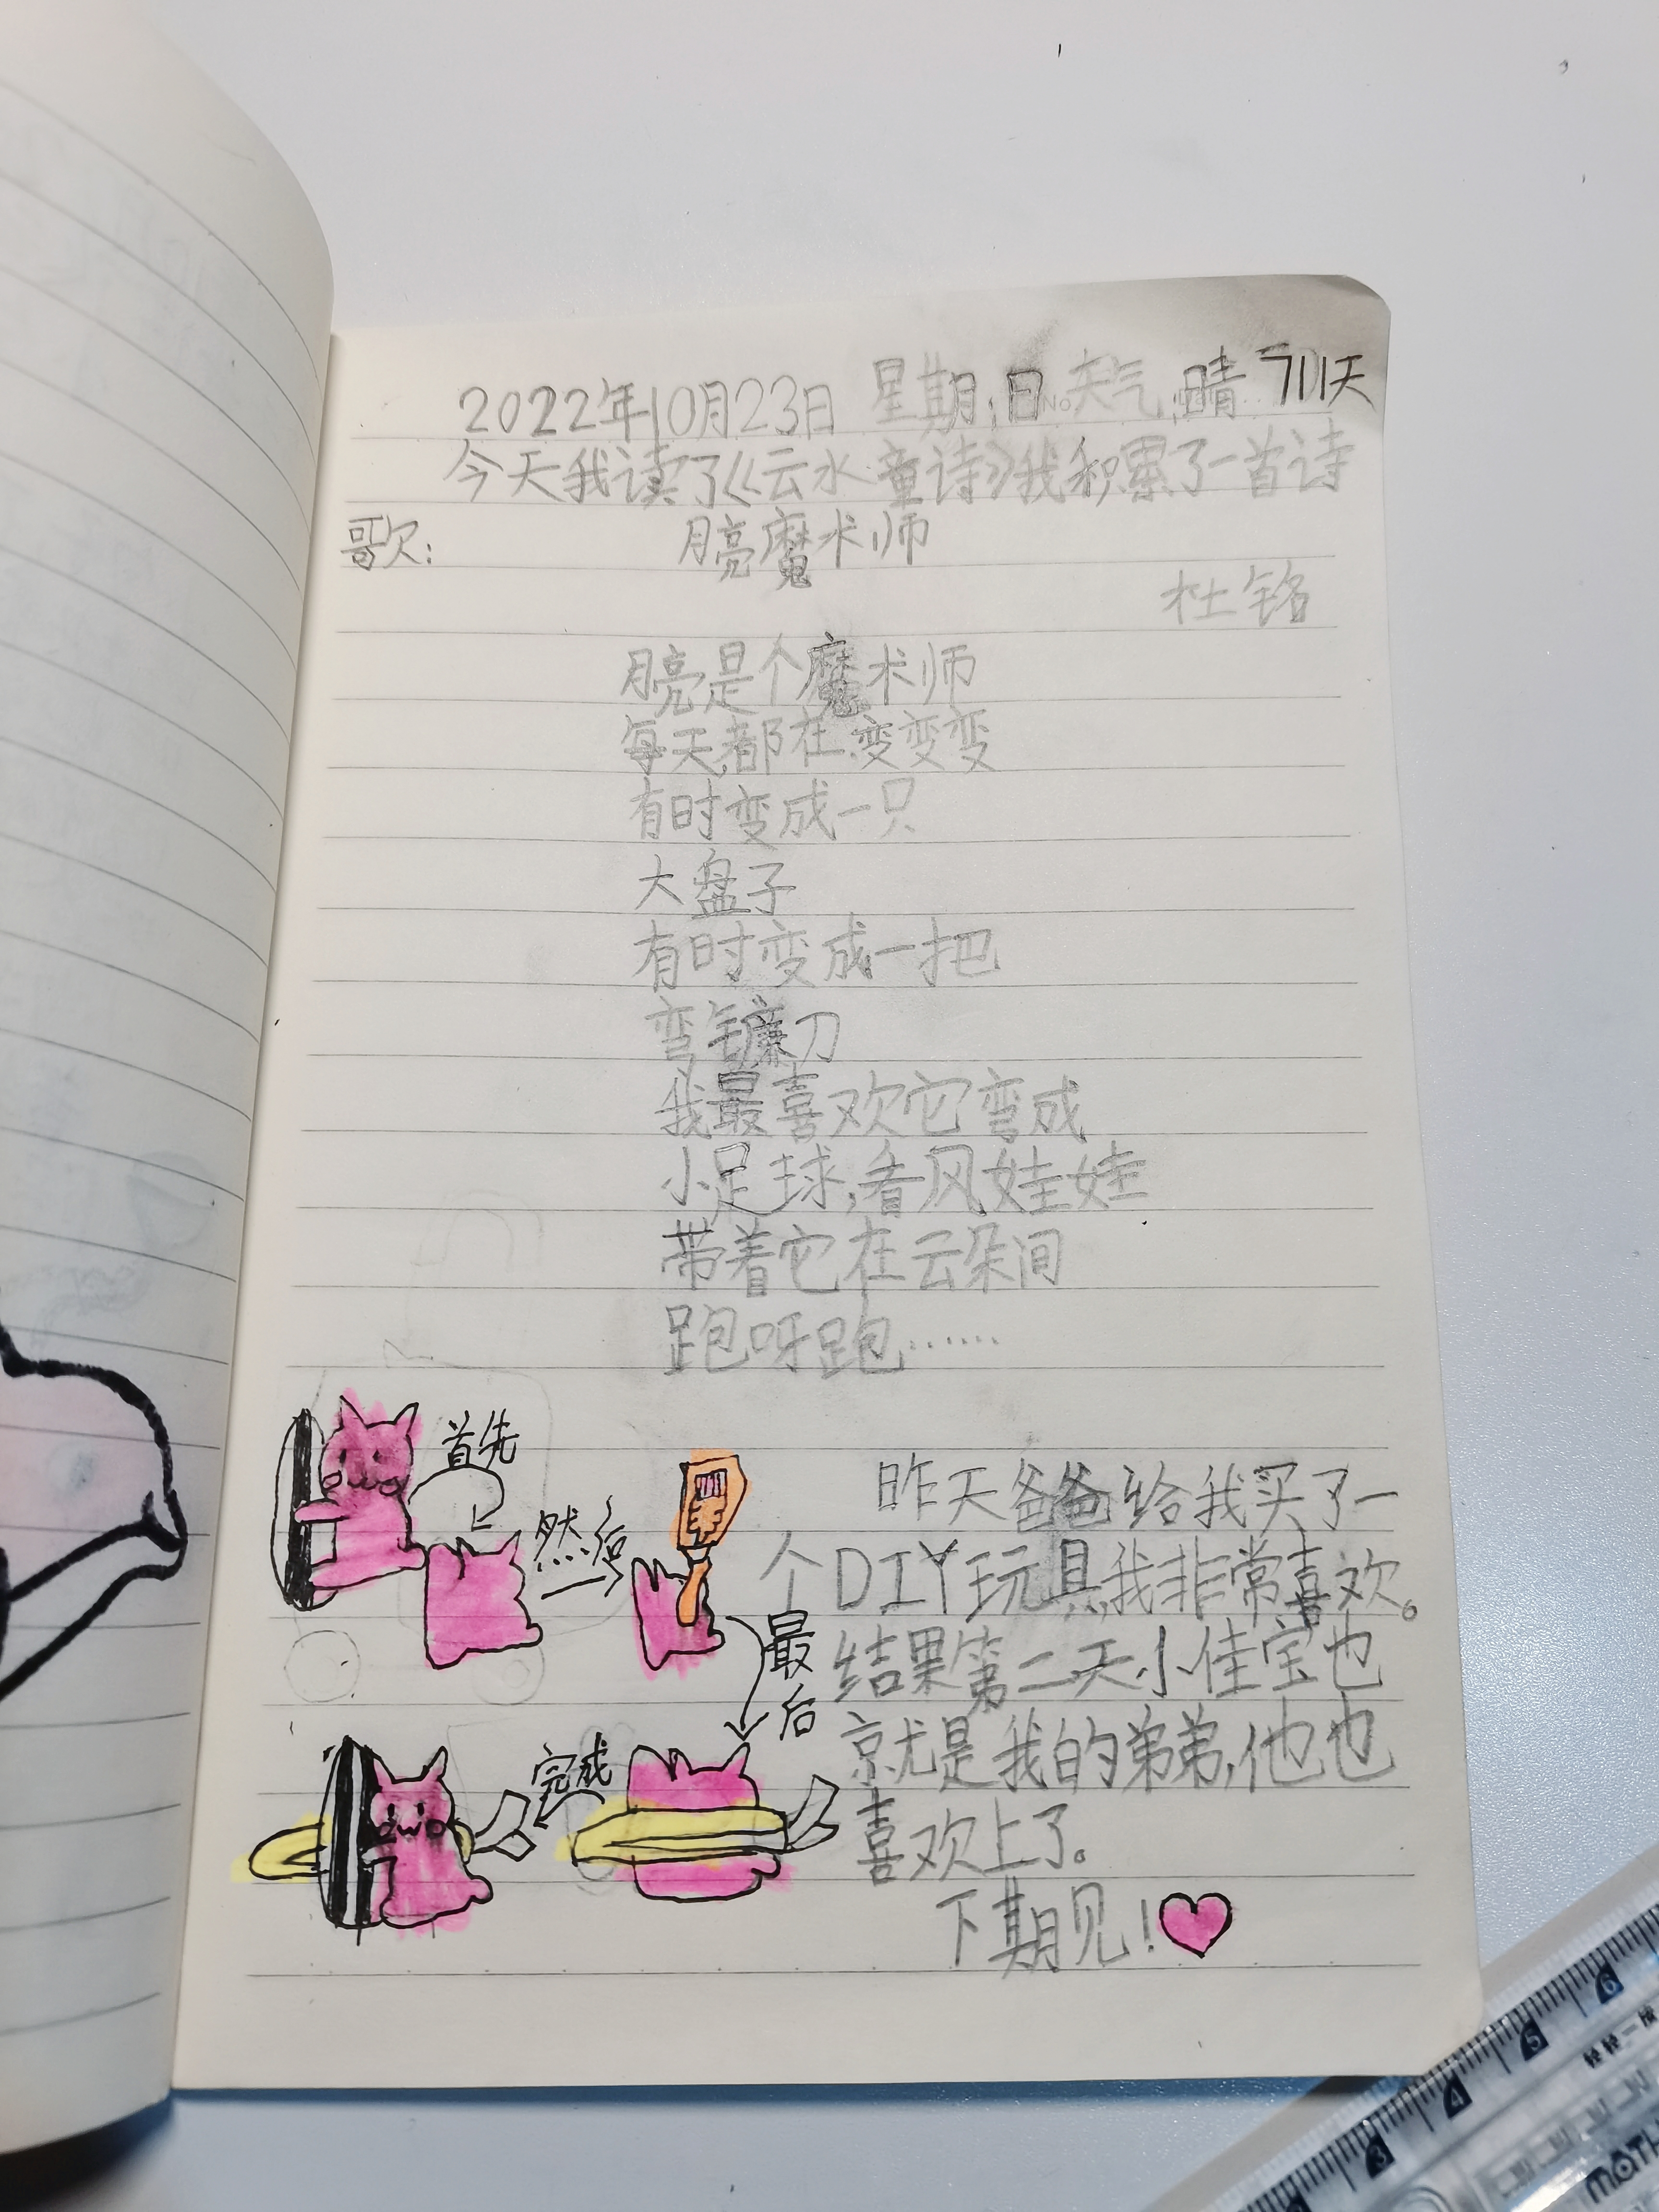 2022年10月23日 星期:日 天气:晴 711天
今天我读了《云水童诗》我积累了一首诗
歌: 月亮魔术师
杜铭
月亮是个魔术师
每天都在变变变
有时变成一只
大盘子
有时变成一把
弯镰刀
我最喜欢它变成
小足球,看风娃娃
带着它在云朵间
跑呀跑……
首先
然后
最后
完成
昨天爸爸给我买了一
个DIY玩具,我非常喜欢。
结果第二天小佳宝也
就是我的弟弟,他也
喜欢上了。
下期见!
3 4 5 6